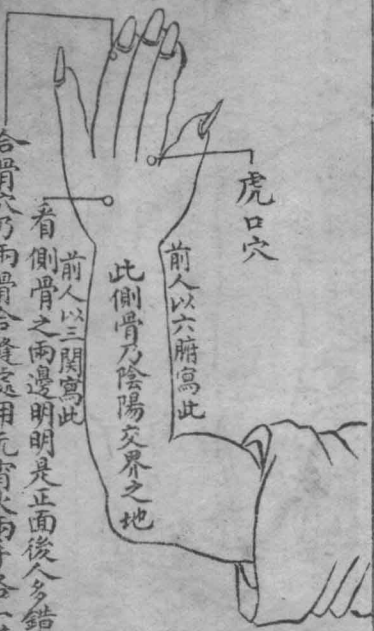 虎口穴
前人以六腑寫此
此側骨乃陰陽交界之地
前人以三関寫此
看側骨之兩邊明明是正面後人多錯
合骨穴乃兩骨合縫處用元宵火兩手各一